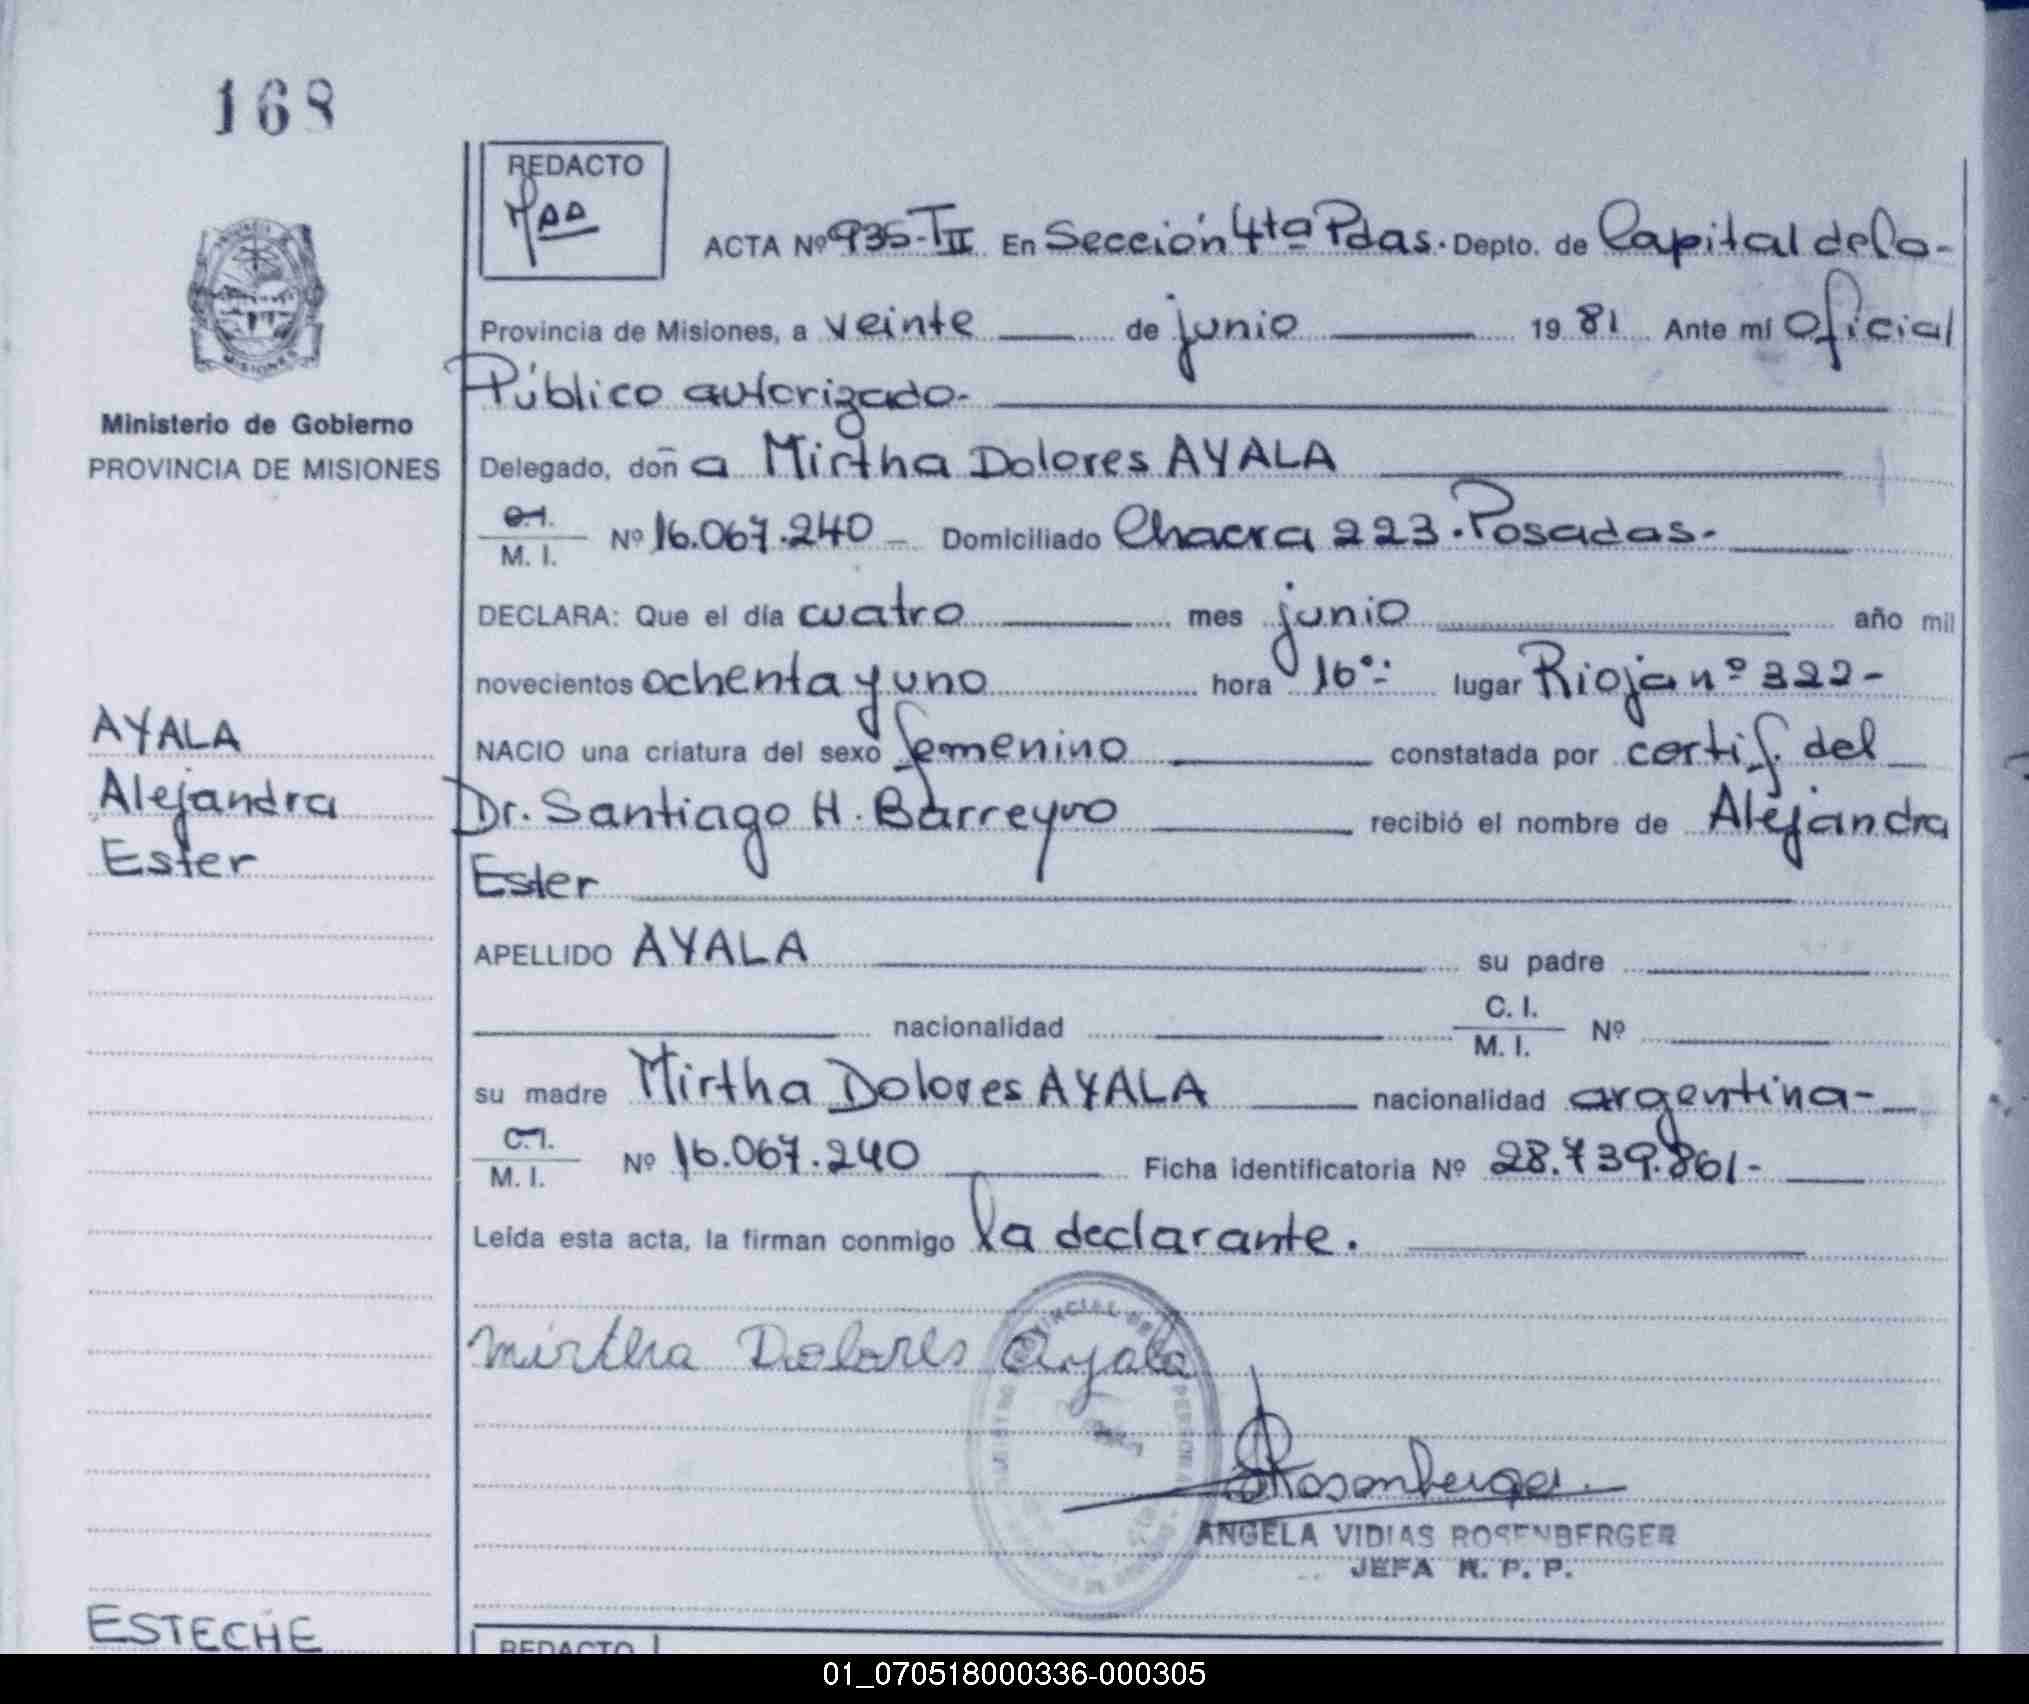 168
REDACTO
ACTA Nº 935-TII En Sección 4ta Pdas. Depto. de Capital de la-
Provincia de Misiones, a veinte de junio 19 81 Ante mí Oficial
Público autorizado.
Ministerio de Gobierno
PROVINCIA DE MISIONES
Delegado, doñ a Mirtha Dolores AYALA
C.I.
M. I. Nº 16.067.240 Domiciliado Chacra 223. Posadas.
DECLARA: Que el día cuatro mes junio año mil
novecientos ochenta y uno hora 16º: lugar Rioja nº 322-
AYALA
Alejandra
Ester
NACIO una criatura del sexo femenino constatada por certif. del
Dr. Santiago H. Barreyro recibió el nombre de Alejandra
Ester
APELLIDO AYALA su padre
nacionalidad C. I.
M. I. Nº
su madre Mirtha Dolores AYALA nacionalidad argentina-
C.I.
M. I. Nº 16.067.240 Ficha identificatoria Nº 28.739.861-
Leída esta acta, la firman conmigo la declarante.
Mirtha Dolores Ayala
Rosenberger
ANGELA VIDIAS ROSENBERGER
JEFA R. P. P.
ESTECHE
REDACTO
01_070518000336-000305